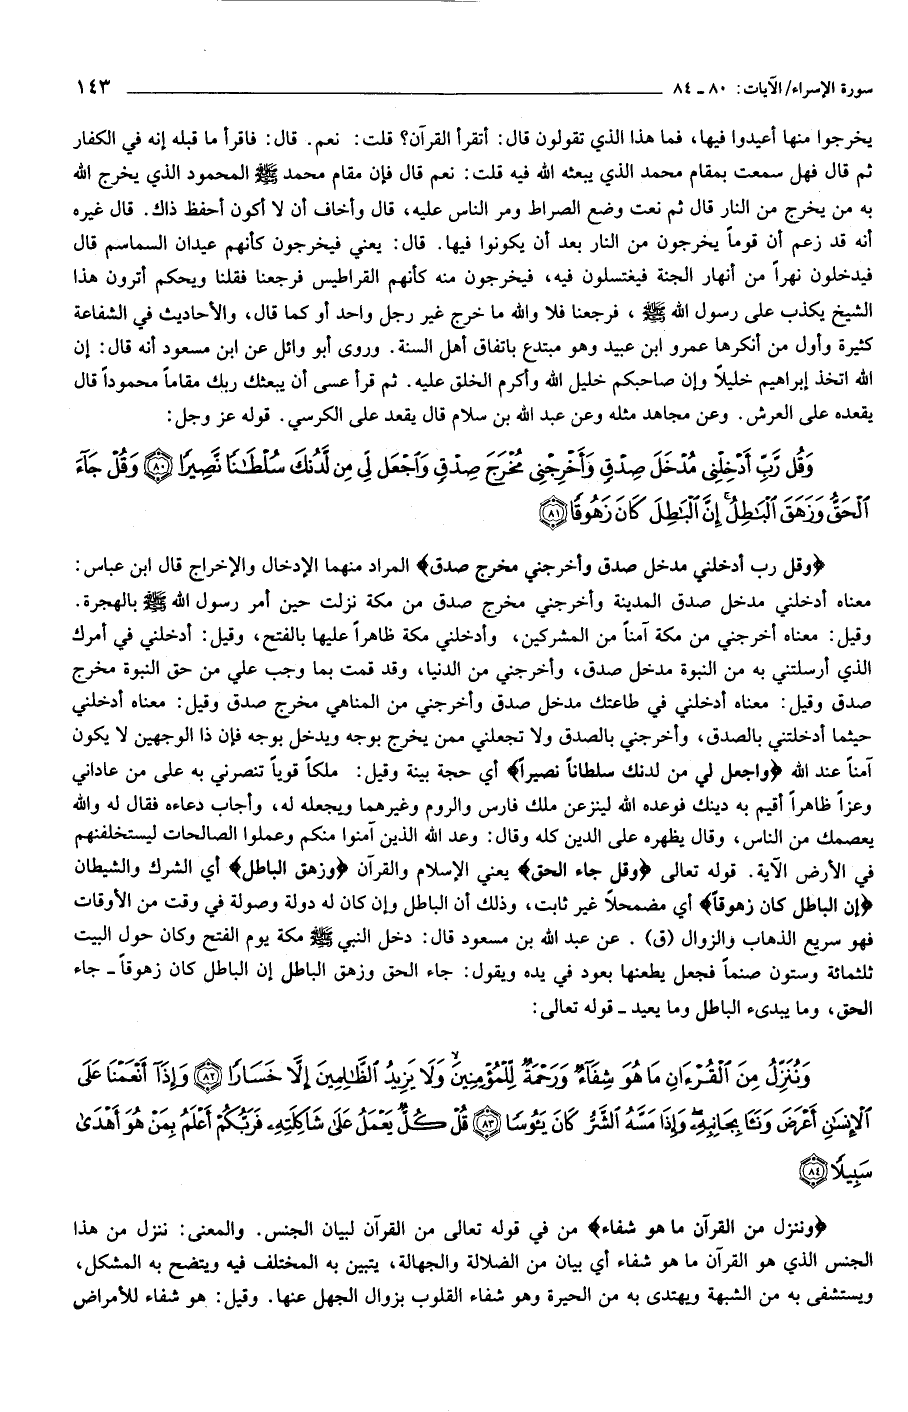 سورة الإسراء/ الآيات: ٨٠ ـ ٨٤ ١٤٣
يخرجوا منها أعيدوا فيها، فما هذا الذي تقولون قال: أتقرأ القرآن؟ قلت: نعم. قال: فاقرأ ما قبله إنه في الكفار
ثم قال فهل سمعت بمقام محمد الذي يبعثه الله فيه قلت: نعم قال فإن مقام محمد ﷺ المحمود الذي يخرج الله
به من يخرج من النار قال ثم نعت وضع الصراط ومر الناس عليه، قال وأخاف أن لا أكون أحفظ ذاك. قال غيره
أنه قد زعم أن قوماً يخرجون من النار بعد أن يكونوا فيها. قال: يعني فيخرجون كأنهم عيدان السماسم قال
فيدخلون نهراً من أنهار الجنة فيغتسلون فيه، فيخرجون منه كأنهم القراطيس فرجعنا فقلنا ويحكم أترون هذا
الشيخ يكذب على رسول الله ﷺ، فرجعنا فلا والله ما خرج غير رجل واحد أو كما قال، والأحاديث في الشفاعة
كثيرة وأول من أنكرها عمرو ابن عبيد وهو مبتدع باتفاق أهل السنة. وروى أبو وائل عن ابن مسعود أنه قال: إن
الله اتخذ إبراهيم خليلاً وإن صاحبكم خليل الله وأكرم الخلق عليه. ثم قرأ عسى أن يبعثك ربك مقاماً محموداً قال
يقعده على العرش. وعن مجاهد مثله وعن عبد الله بن سلام قال يقعد على الكرسي. قوله عز وجل:
وَقُل رَّبِّ أَدْخِلْنِى مُدْخَلَ صِدْقٍ وَأَخْرِجْنِى مُخْرَجَ صِدْقٍ وَٱجْعَل لِّى مِن لَّدُنكَ سُلْطَٰنًا نَّصِيرًا ﴿٨٠﴾ وَقُلْ جَآءَ
ٱلْحَقُّ وَزَهَقَ ٱلْبَٰطِلُ ۚ إِنَّ ٱلْبَٰطِلَ كَانَ زَهُوقًا ﴿٨١﴾
﴿وقل رب أدخلني مدخل صدق وأخرجني مخرج صدق﴾ المراد منهما الإدخال والإخراج قال ابن عباس:
معناه أدخلني مدخل صدق المدينة وأخرجني مخرج صدق من مكة نزلت حين أمر رسول الله ﷺ بالهجرة.
وقيل: معناه أخرجني من مكة آمناً من المشركين، وأدخلني مكة ظاهراً عليها بالفتح، وقيل: أدخلني في أمرك
الذي أرسلتني به من النبوة مدخل صدق، وأخرجني من الدنيا، وقد قمت بما وجب علي من حق النبوة مخرج
صدق وقيل: معناه أدخلني في طاعتك مدخل صدق وأخرجني من المناهي مخرج صدق وقيل: معناه أدخلني
حيثما أدخلتني بالصدق، وأخرجني بالصدق ولا تجعلني ممن يخرج بوجه ويدخل بوجه فإن ذا الوجهين لا يكون
آمناً عند الله ﴿واجعل لي من لدنك سلطاناً نصيراً﴾ أي حجة بينة وقيل: ملكاً قوياً تنصرني به على من عاداني
وعزاً ظاهراً أقيم به دينك فوعده الله لينزعن ملك فارس والروم وغيرهما ويجعله له، وأجاب دعاءه فقال له والله
يعصمك من الناس، وقال يظهره على الدين كله وقال: وعد الله الذين آمنوا منكم وعملوا الصالحات ليستخلفنهم
في الأرض الآية. قوله تعالى ﴿وقل جاء الحق﴾ يعني الإسلام والقرآن ﴿وزهق الباطل﴾ أي الشرك والشيطان
﴿إن الباطل كان زهوقاً﴾ أي مضمحلاً غير ثابت، وذلك أن الباطل وإن كان له دولة وصولة في وقت من الأوقات
فهو سريع الذهاب والزوال (ق). عن عبد الله بن مسعود قال: دخل النبي ﷺ مكة يوم الفتح وكان حول البيت
ثلثمائة وستون صنماً فجعل يطعنها بعود في يده ويقول: جاء الحق وزهق الباطل إن الباطل كان زهوقاً ـ جاء
الحق، وما يبدىء الباطل وما يعيد ـ قوله تعالى:
وَنُنَزِّلُ مِنَ ٱلْقُرْءَانِ مَا هُوَ شِفَآءٌ وَرَحْمَةٌ لِّلْمُؤْمِنِينَ ۙ وَلَا يَزِيدُ ٱلظَّٰلِمِينَ إِلَّا خَسَارًا ﴿٨٢﴾ وَإِذَآ أَنْعَمْنَا عَلَى
ٱلْإِنسَٰنِ أَعْرَضَ وَنَـَٔا بِجَانِبِهِۦ ۖ وَإِذَا مَسَّهُ ٱلشَّرُّ كَانَ يَـُٔوسًا ﴿٨٣﴾ قُلْ كُلٌّ يَعْمَلُ عَلَىٰ شَاكِلَتِهِۦ فَرَبُّكُمْ أَعْلَمُ بِمَنْ هُوَ أَهْدَىٰ
سَبِيلًا ﴿٨٤﴾
﴿وننزل من القرآن ما هو شفاء﴾ من في قوله تعالى من القرآن لبيان الجنس. والمعنى: ننزل من هذا
الجنس الذي هو القرآن ما هو شفاء أي بيان من الضلالة والجهالة، يتبين به المختلف فيه ويتضح به المشكل،
ويستشفى به من الشبهة ويهتدى به من الحيرة وهو شفاء القلوب بزوال الجهل عنها. وقيل: هو شفاء للأمراض